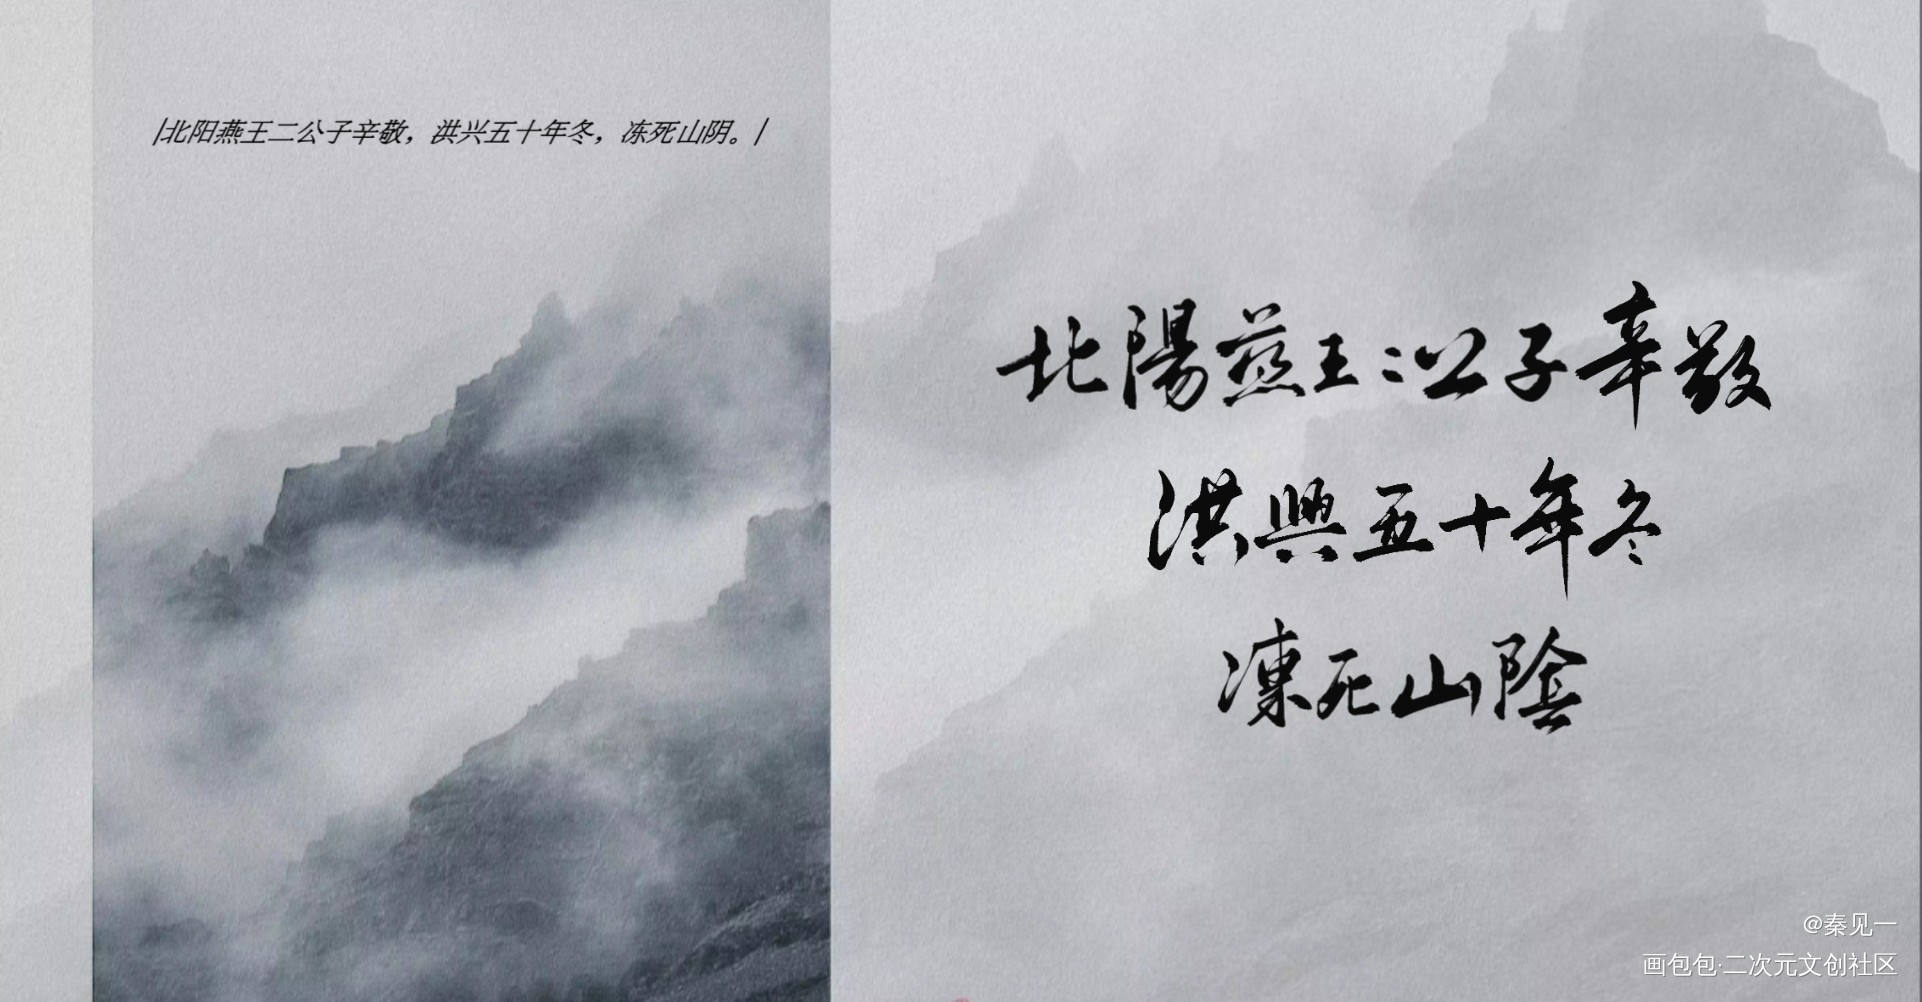 |北阳燕王二公子辛敬，洪兴五十年冬，冻死山阴。|
北陽燕王二公子辛敬
洪興五十年冬
凍死山陰
@秦见一
画包包·二次元文创社区